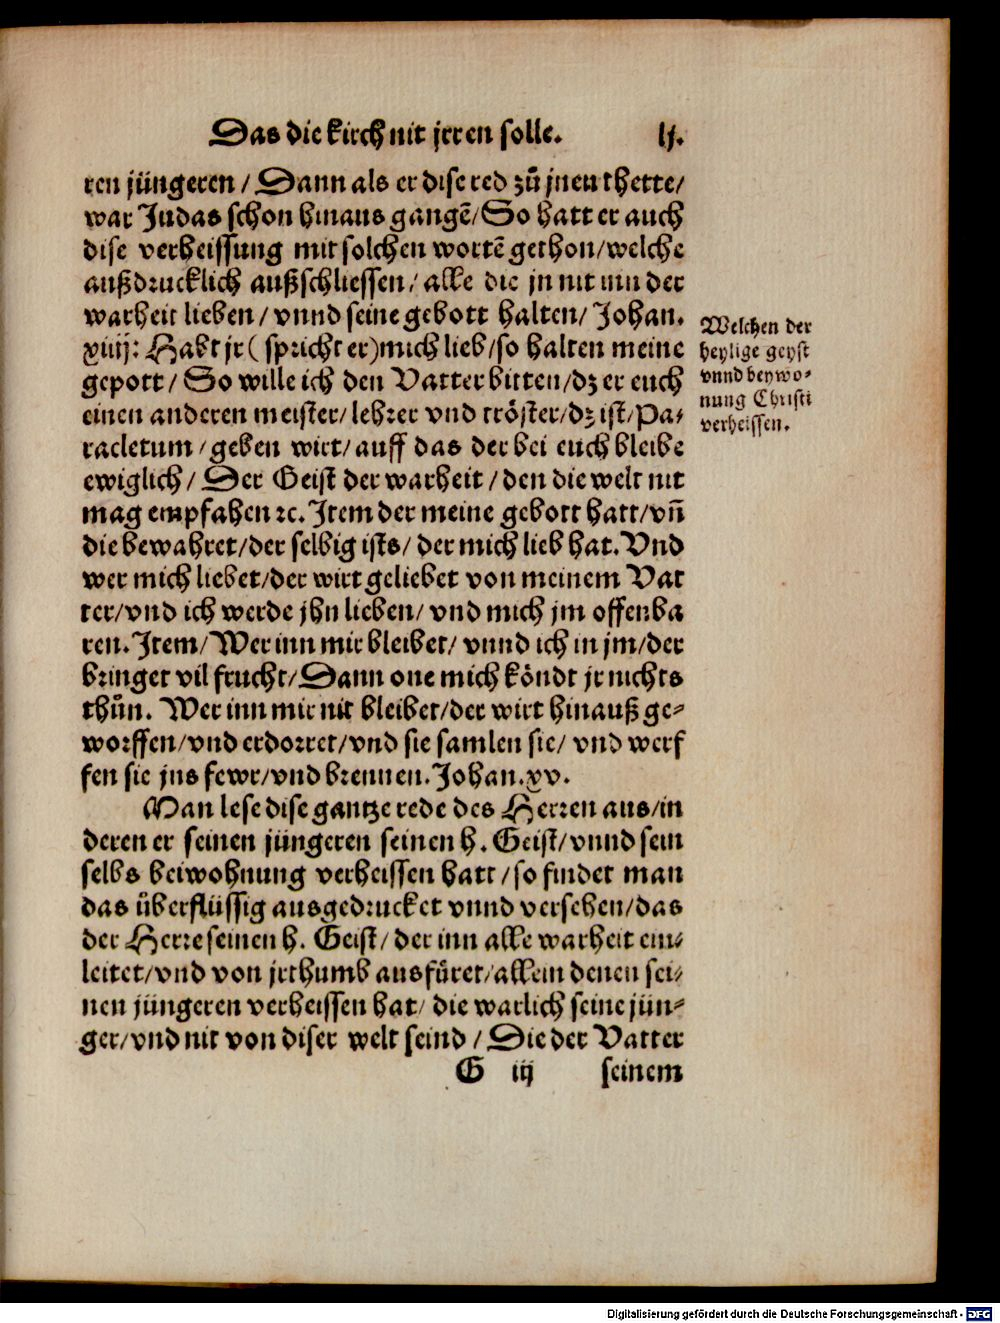 Das die kirch nit jrren solle. lj.
ren jüngeren / Dann als er dise red zů jnen thette/
war Judas schon hinaus gangē/ So hatt er auch
dise verheissung mit solchen wortē gethon/welche
außdrucklich außschliessen/ alle die jn nit inn der
warheit lieben/ vnnd seine gebott halten/ Johan.
xiiij: Habt jr ( spricht er)mich lieb/so halten meine
gepott/ So wille ich den Vatter bitten/dz er euch
einen anderen meister/ lehrer vnd tröster/dz ist/Pa-
racletum /geben wirt/ auff das der bei euch bleibe
ewiglich/ Der Geist der warheit / den die welt nit
mag empfahen ꝛc. Item der meine gebott hatt/vñ
die bewahret/der selbig ists/ der mich lieb hat. Vnd
wer mich liebet/der wirt geliebet von meinem Vat
ter/vnd ich werde jhn lieben/ vnd mich jm offenba
ren. Item/ Wer inn mir bleibet/ vnnd ich in jm/der
bringet vil frucht/ Dann one mich köndt jr nichts
thůn. Wer inn mir nit bleibet/der wirt hinauß ge-
worffen/vnd erdorret/vnd sie samlen sie/ vnd werf
fen sie jns fewr/vnd brennen. Johan.xv.
Man lese dise gantze rede des Herren aus/in
deren er seinen jüngeren seinen h. Geist/vnnd sein
selbs beiwohnung verheissen hatt/so findet man
das überflüssig ausgedrucket vnnd versehen/das
der Herre seinen h. Geist/ der inn alle warheit ein-
leitet/vnd von jrthumb ausfüret/allein denen sei-
nen jüngeren verheissen hat/ die warlich seine jün-
ger/vnd nit von diser welt seind / Die der Vatter
G iij seinem
Welchen der
heylige geyst
vnnd beywo-
nung Christi
verheissen.
Digitalisierung gefördert durch die Deutsche Forschungsgemeinschaft - DFG